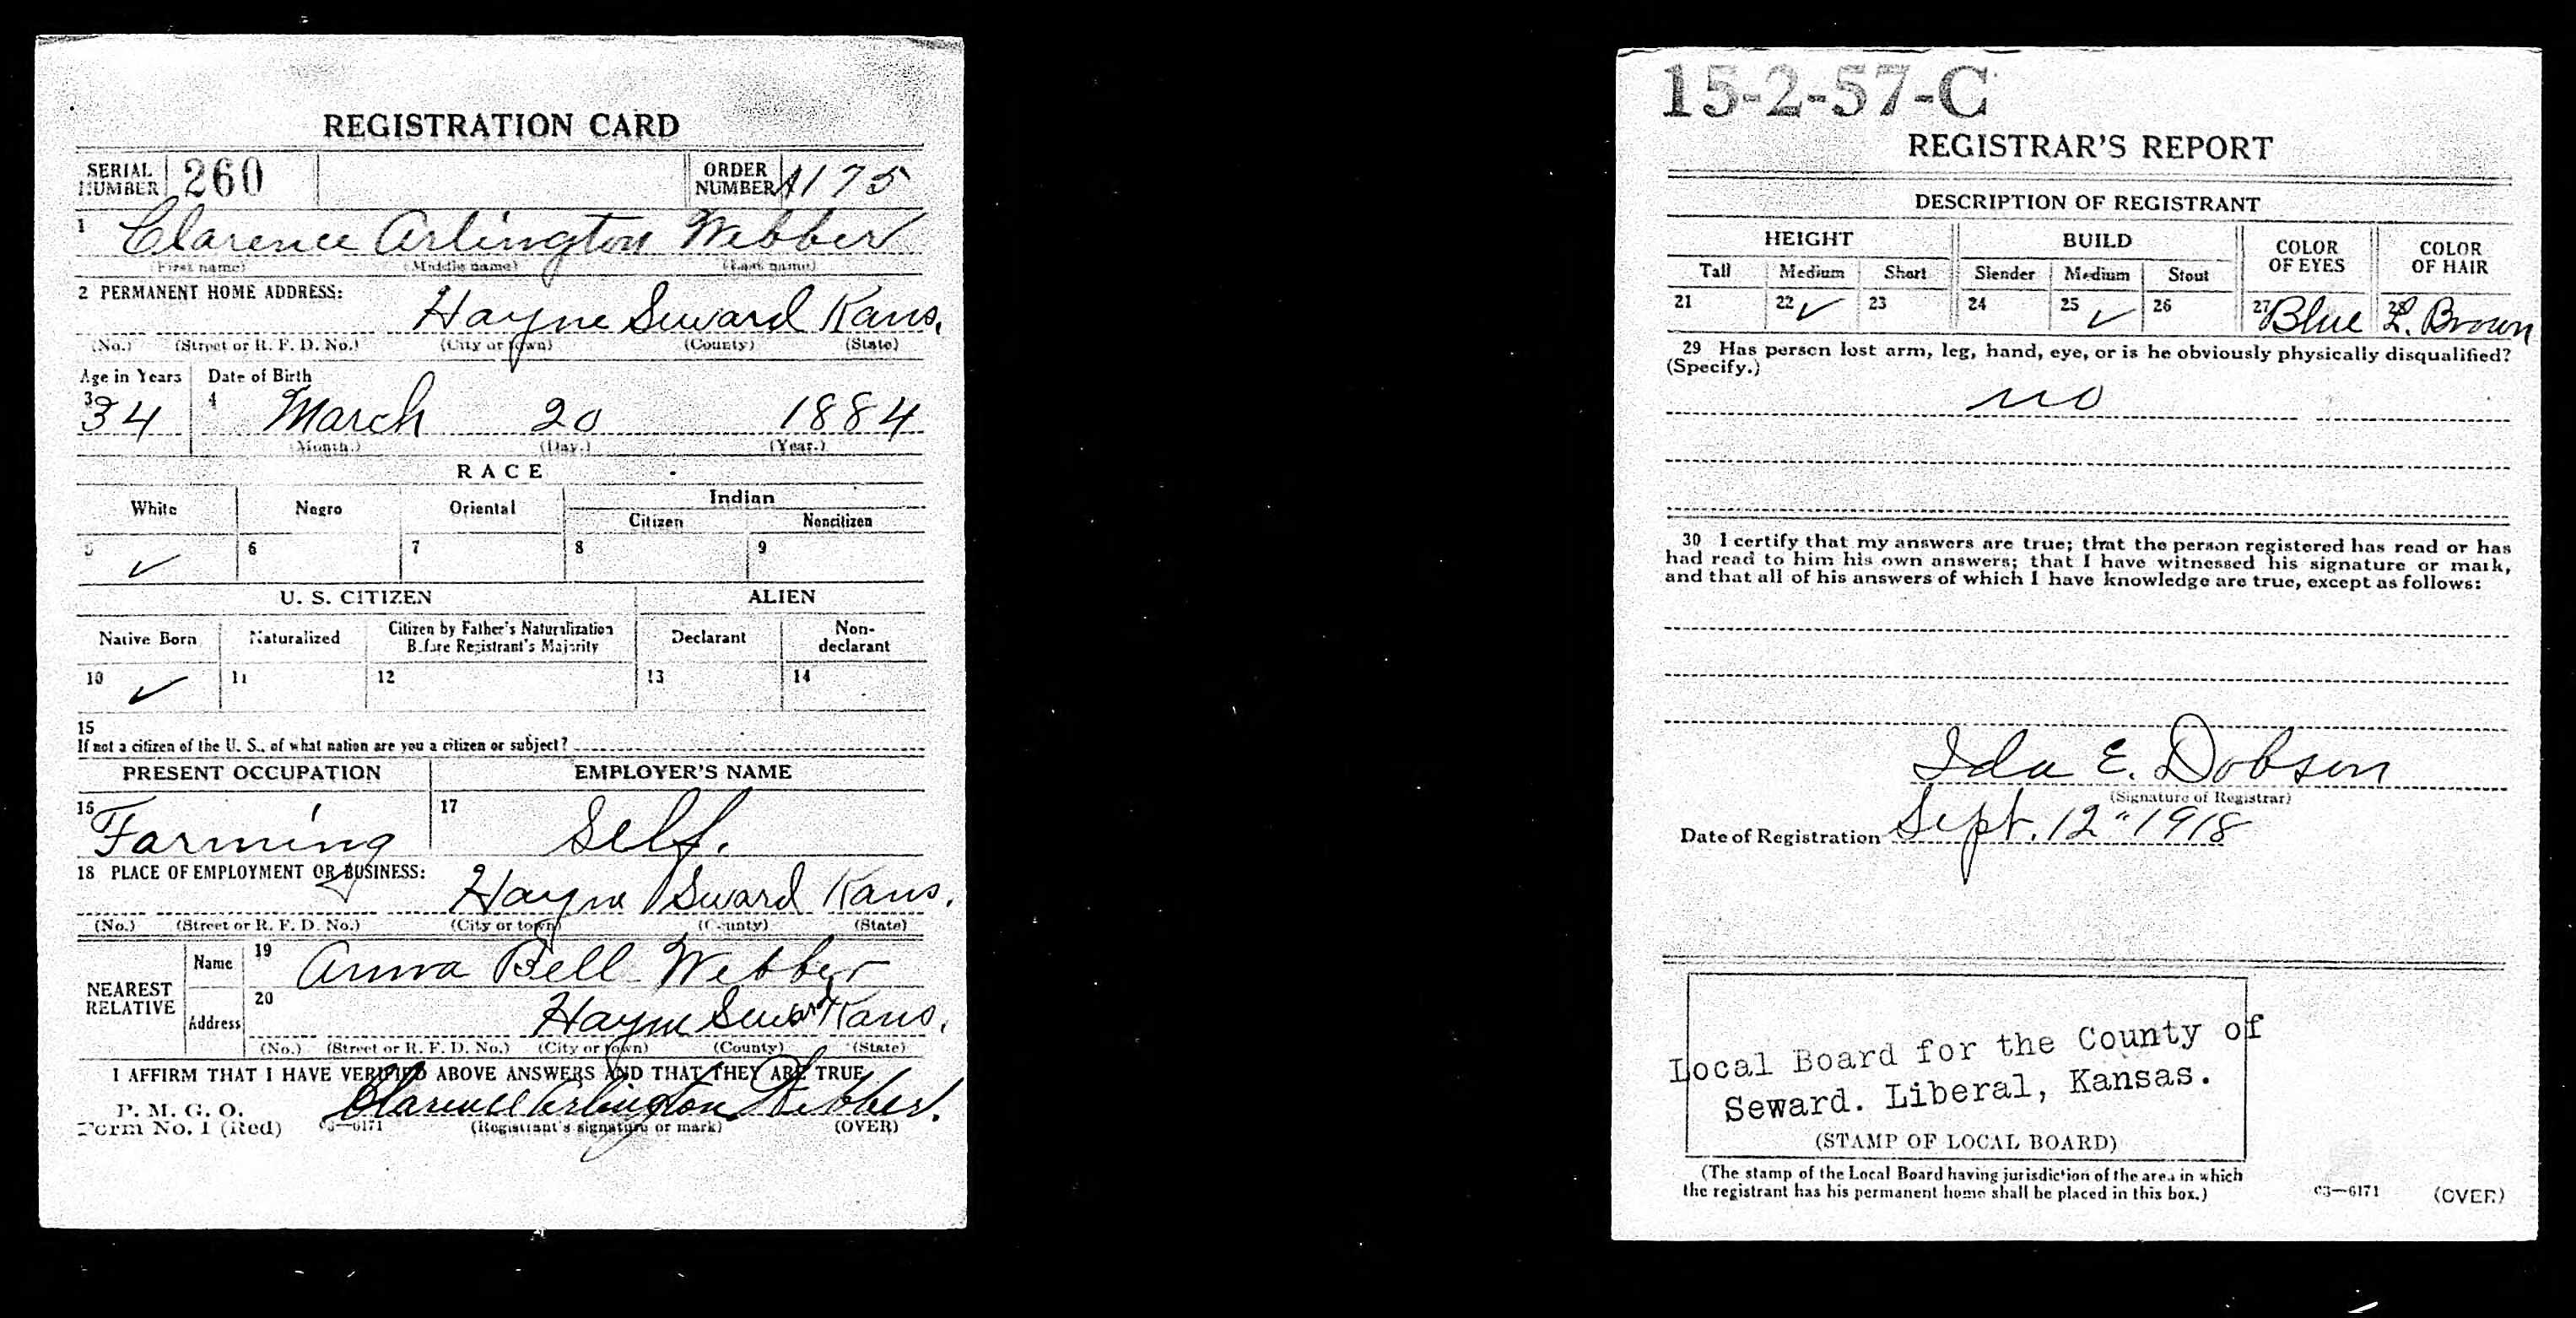 REGISTRATION CARD
SERIAL NUMBER 260 ORDER NUMBER A1175
1 Clarence Arlington Webber
(First name) (Middle name) (Last name)
2 PERMANENT HOME ADDRESS:
Hayne Seward Kans.
(No.) (Street or R. F. D. No.) (City or town) (County) (State)
Age in Years Date of Birth
3 34 4 March 20 1884
(Month.) (Day.) (Year.)
RACE
White Negro Oriental Indian
Citizen Noncitizen
5 ✓ 6 7 8 9
U. S. CITIZEN ALIEN
Native Born Naturalized Citizen by Father's Naturalization Before Registrant's Majority Declarant Non-declarant
10 ✓ 11 12 13 14
15
If not a citizen of the U. S., of what nation are you a citizen or subject?
PRESENT OCCUPATION EMPLOYER'S NAME
16 Farming 17 Self.
18 PLACE OF EMPLOYMENT OR BUSINESS:
Hayne Seward Kans.
(No.) (Street or R. F. D. No.) (City or town) (County) (State)
NEAREST RELATIVE
Name 19 Anna Bell Webber
Address 20 Hayne Seward Kans.
(No.) (Street or R. F. D. No.) (City or town) (County) (State)
I AFFIRM THAT I HAVE VERIFIED ABOVE ANSWERS AND THAT THEY ARE TRUE
P. M. G. O.
Form No. 1 (Red) 03—6171 Clarence Arlington Webber.
(Registrant's signature or mark) (OVER)
15-2-57-C
REGISTRAR'S REPORT
DESCRIPTION OF REGISTRANT
HEIGHT BUILD COLOR OF EYES COLOR OF HAIR
Tall Medium Short Slender Medium Stout
21 22 ✓ 23 24 25 ✓ 26 27 Blue 28 L. Brown
29 Has person lost arm, leg, hand, eye, or is he obviously physically disqualified?
(Specify.)
no
30 I certify that my answers are true; that the person registered has read or has
had read to him his own answers; that I have witnessed his signature or mark,
and that all of his answers of which I have knowledge are true, except as follows:
Ida E. Dobson
(Signature of Registrar)
Date of Registration Sept. 12" 1918
Local Board for the County of
Seward. Liberal, Kansas.
(STAMP OF LOCAL BOARD)
(The stamp of the Local Board having jurisdiction of the area in which
the registrant has his permanent home shall be placed in this box.)
03—6171 (OVER)